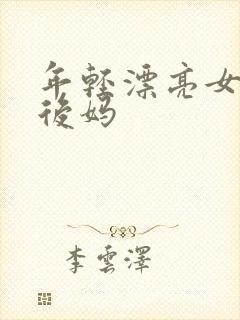 年轻漂亮女
後妈
李雲澤